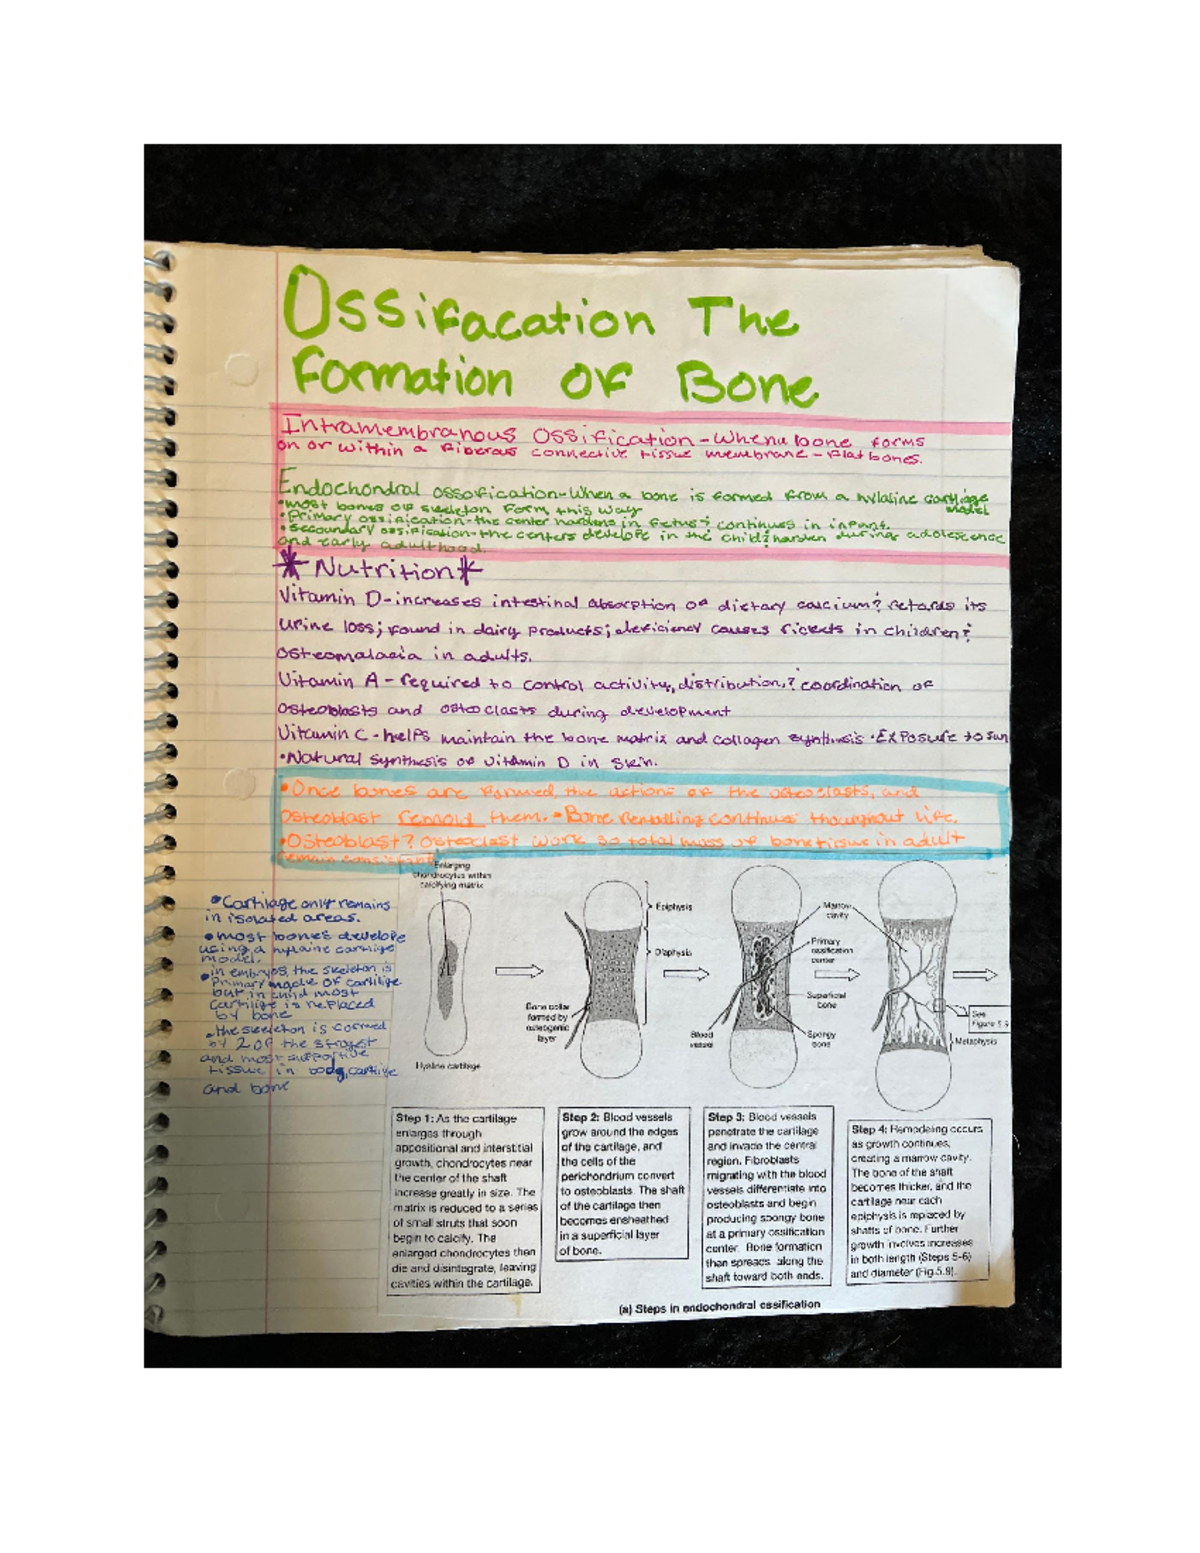 Ossifacation The
Formation OF Bone
Intramembranous Ossification-When a bone forms
on or within a fiberous connective tissue membrane-flat bones.
Endochondral ossofication-When a bone is formed from a hylaline cartilage
model
•most bones of skeleton form this way
•Primary ossification-the center hardens in fetus & continues in infant.
•Secoundary ossification-the centers develope in the child & harden during adolescence
and early adulthood.
*Nutrition*
Vitamin D-increases intestinal absorption of dietary calcium & retards its
urine loss; found in dairy products; deficiency causes rickets in children &
osteomalacia in adults.
Vitamin A-required to control activity, distribution, & coordination of
osteoblasts and osteoclasts during development
Vitamin C-helps maintain the bone matrix and collagen synthisis •Exposure to sun
•Natural synthesis of vitamin D in skin.
•Once bones are formed, the actions of the osteoclasts, and
osteoblast remold them. •Bone remolling continues thoughout life.
•Osteoblast & osteoclast work so total mass of bone tissue in adult
remain consistant
•Cartilage only remains
in isolated areas.
•most bones develope
using a hylaine cartilige
model.
•in embryos, the skeleton is
Primary made of cartilige
but in child most
cartilige is replaced
by bone
•the skeleton is formed
by 2 of the strogest
and most supportive
tissue in body, cartilige
and bone
Enlarging
chondrocytes within
calcifying matrix
Hyaline cartilage
Epiphysis
Diaphysis
Bone collar
formed by
osteogenic
layer
Marrow
cavity
Primary
ossification
center
Superficial
bone
Spongy
bone
Blood
vessel
See
Figure 5.9
Metaphysis
Step 1: As the cartilage
enlarges through
appositional and interstitial
growth, chondrocytes near
the center of the shaft
increase greatly in size. The
matrix is reduced to a series
of small struts that soon
begin to calcify. The
enlarged chondrocytes then
die and disintegrate, leaving
cavities within the cartilage.
Step 2: Blood vessels
grow around the edges
of the cartilage, and
the cells of the
perichondrium convert
to osteoblasts. The shaft
of the cartilage then
becomes ensheathed
in a superficial layer
of bone.
Step 3: Blood vessels
penetrate the cartilage
and invade the central
region. Fibroblasts
migrating with the blood
vessels differentiate into
osteoblasts and begin
producing spongy bone
at a primary ossification
center. Bone formation
then spreads along the
shaft toward both ends.
Step 4: Remodeling occurs
as growth continues,
creating a marrow cavity.
The bone of the shaft
becomes thicker, and the
cartilage near each
epiphysis is replaced by
shafts of bone. Further
growth involves increases
in both length (Steps 5-6)
and diameter (Fig.5.9).
(a) Steps in endochondral ossification